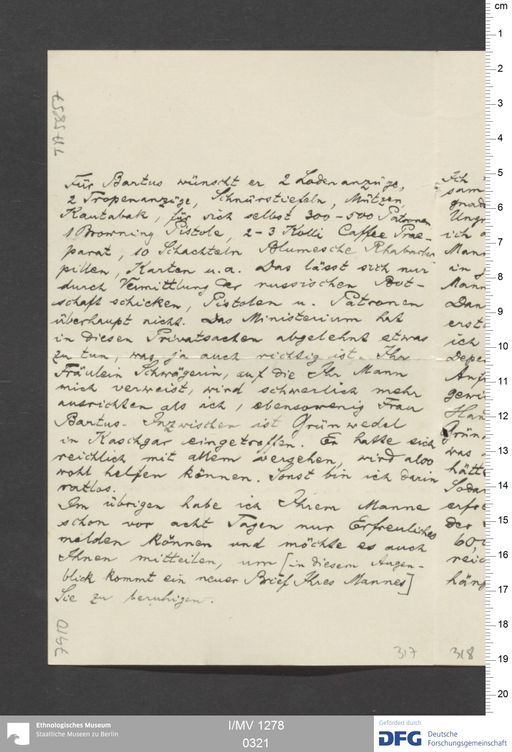 Für Bartus wünscht er 2 Lodenanzüge,
2 Tropenanzüge, Schnürstiefeln, Mützen
Kautabak, für sich selbst 300-500 Patronen
1 Browning Pistole, 2-3 Kolli Caffee Prae-
parat, 10 Schachteln Blumesche Rhabarber
pillen, Karten u.a. Das lässt sich nur
durch Vermittlung der russischen Bot-
schaft schicken, Pistolen u. Patronen
überhaupt nicht. Das Ministerium hat
in diesen Privatsachen abgelehnt etwas
zu tun, was ja auch richtig ist. Ihr
Fräulein Schwägerin, auf die Ihr Mann
mich verweist, wird schwerlich mehr
ausrichten als ich, ebensowenig Frau
Bartus. Inzwischen ist Grünwedel
in Kaschgar eingetroffen. Er hatte sich
reichlich mit allem versehen, wird also
wohl helfen können. Sonst bin ich darin
ratlos.
Im übrigen habe ich Ihrem Manne
schon vor acht Tagen nur Erfreuliches
melden können und möchte es auch
Ihnen mitteilen, um [in diesem Augen-
blick kommt ein neuer Brief Ihres Mannes]
Sie zu beruhigen.
317
318
Ich
sam
gnäd
Ungr
ich a
Mann
in
Mann
Dan
erst
ich
Depe
Anf
gewi
Grün
was
hätt
Soda
erfre
der
60,
reic
häng
7910
cm
1
2
3
4
5
6
7
8
9
10
11
12
13
14
15
16
17
18
19
20
Ethnologisches Museum
Staatliche Museen zu Berlin
I/MV 1278
0321
Gefördert durch
DFG Deutsche
Forschungsgemeinschaft